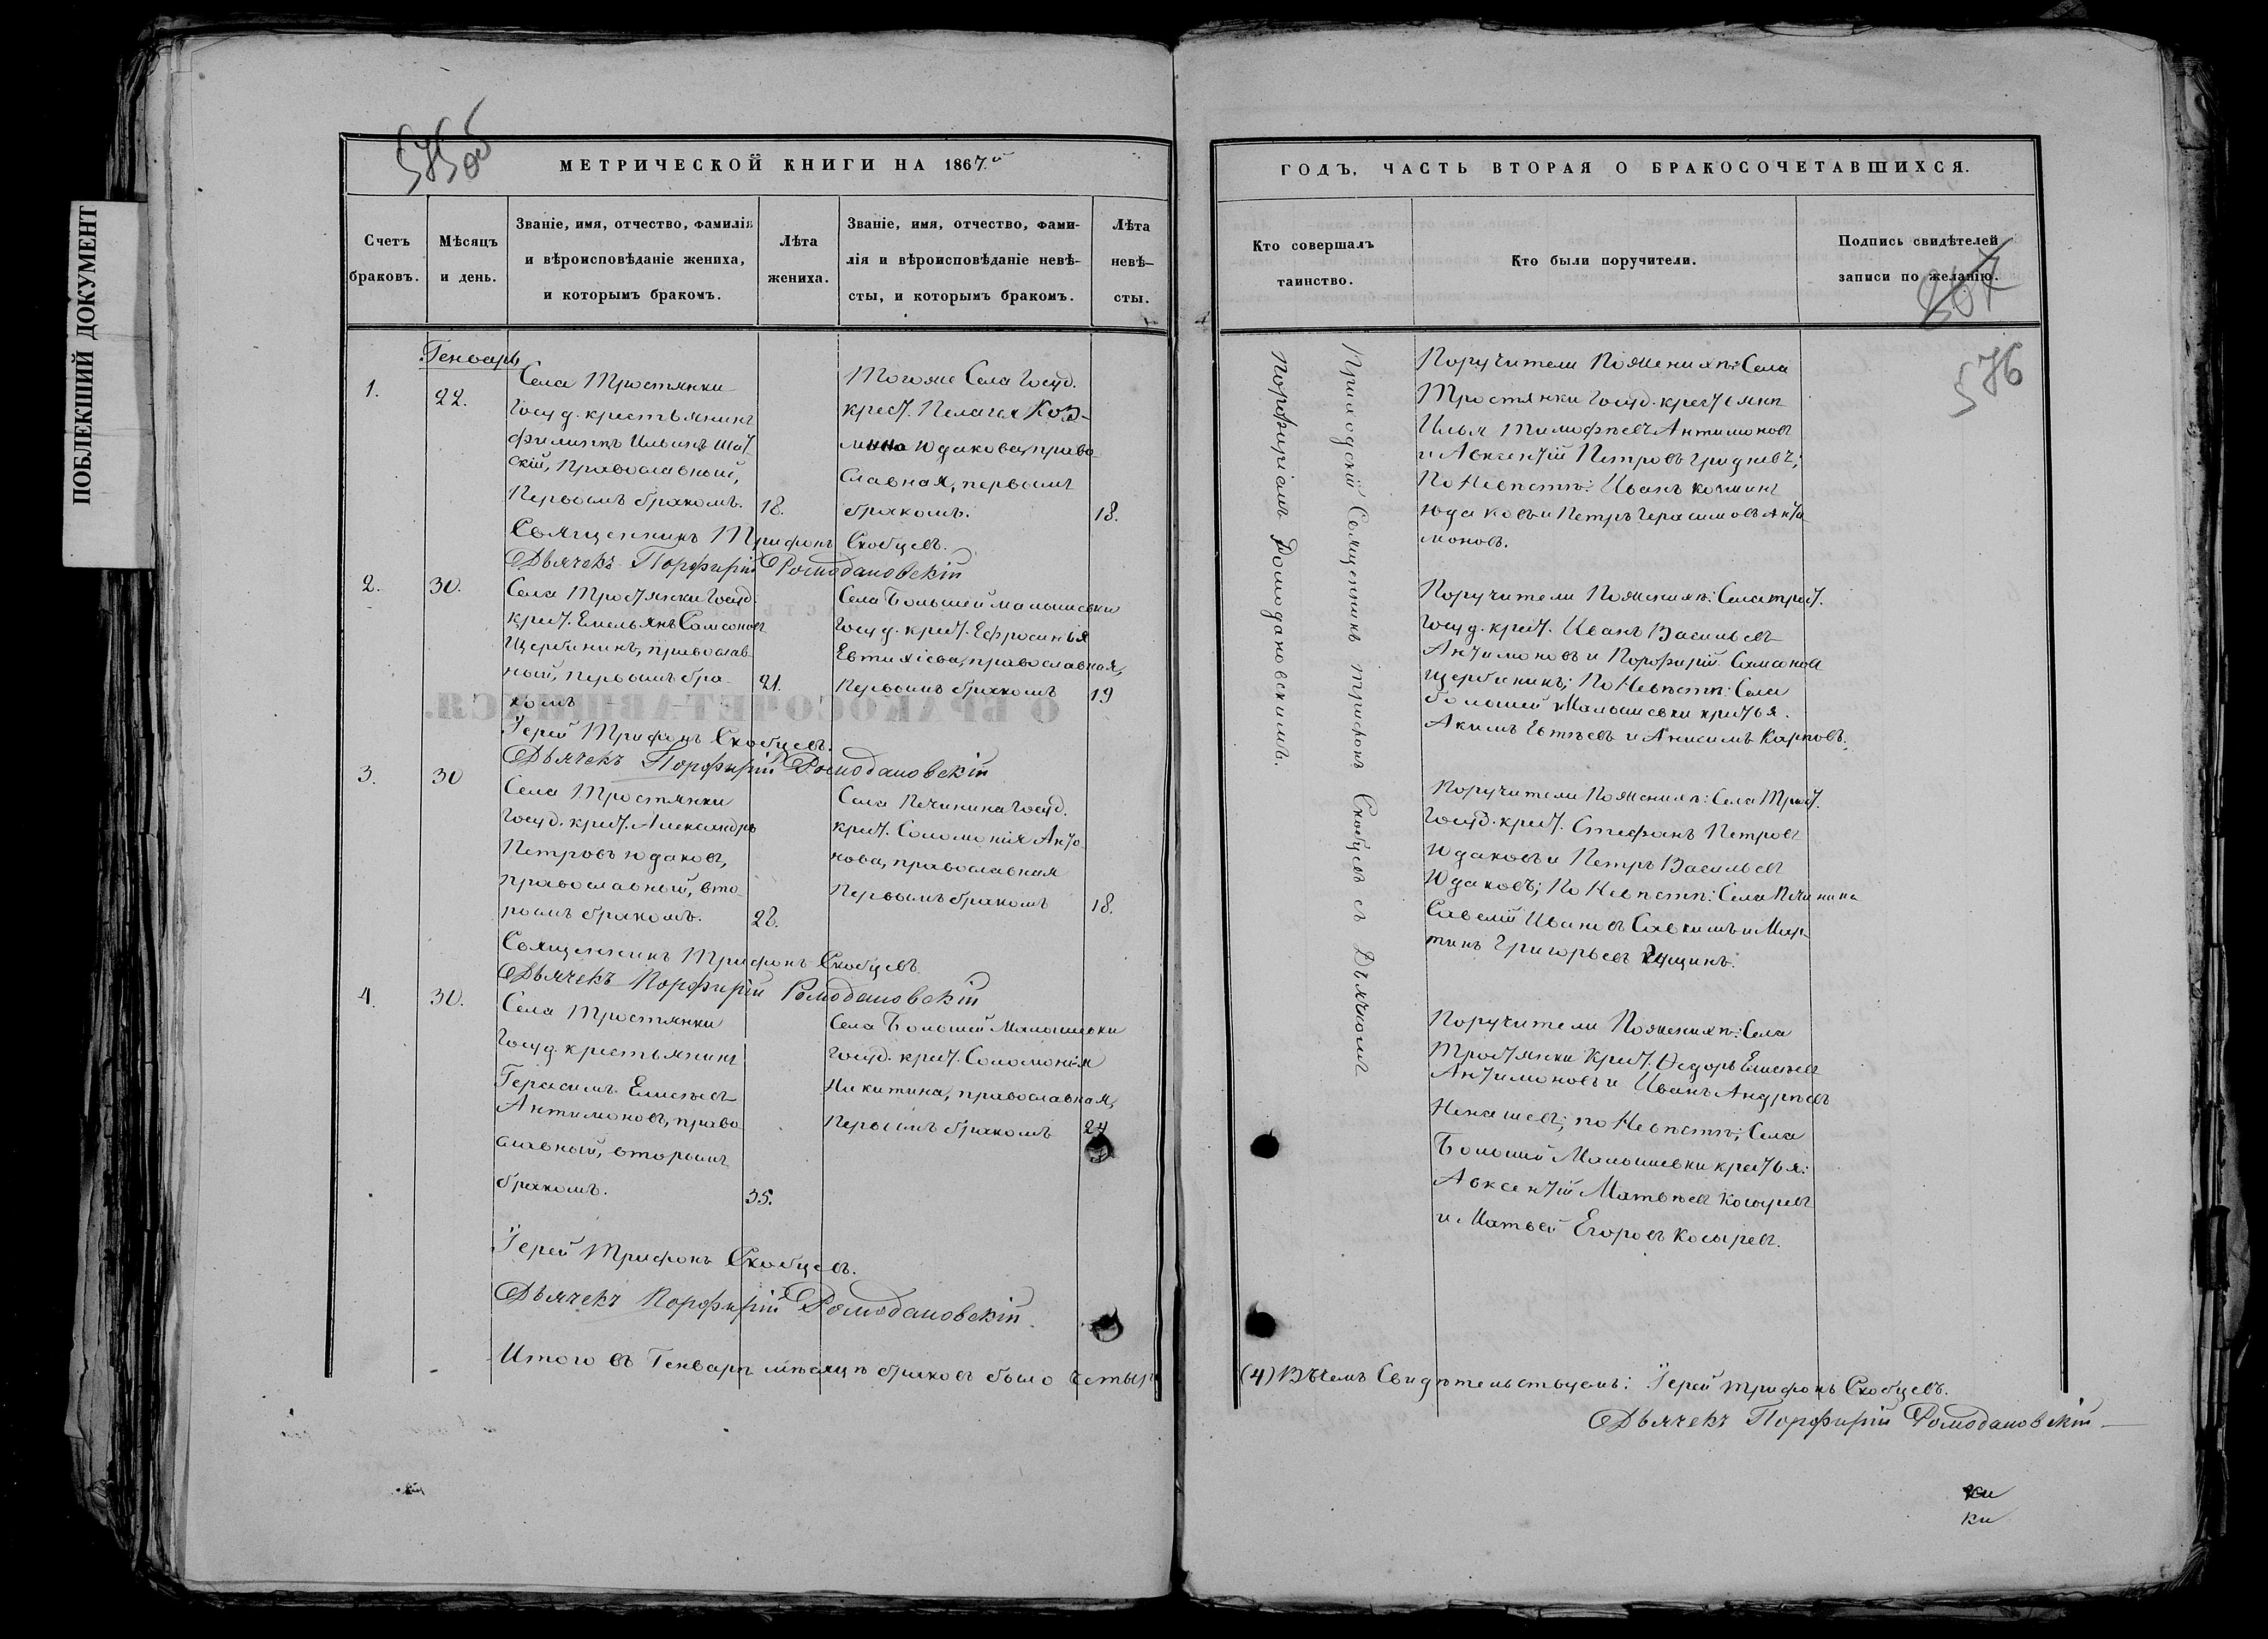 ПОБЛЕКШИЙ ДОКУМЕНТ
575об
МЕТРИЧЕСКОЙ КНИГИ НА 1867.й
Счетъ браковъ.
Мѣсяцъ и день.
Званіе, имя, отчество, фамилія
и вѣроисповѣданіе жениха,
и которымъ бракомъ.
Лѣта жениха.
Званіе, имя, отчество, фами-
лія и вѣроисповѣданіе невѣ-
сты, и которымъ бракомъ.
Лѣта невѣ-
сты.
Генварь
1.
22.
Села Тростянки
Госуд. крестьянинъ
Филиппъ Ильинъ Шат
скій, Православный,
Первымъ бракомъ.
18.
Тогоже Села Госуд.
крест. Пелагея Коз-
мина Юдакова, право
славная, первымъ
бракомъ.
18.
Священникъ Трифонъ Скобцевъ.
Дьячекъ Порфирій Ромодановскій
2.
30.
Села Тростянки Госуд.
крест. Емельянъ Самсоновъ
Щербининъ, православ-
ный, первымъ бра-
комъ
21.
Села Большей Малышевки
Госуд. крест. Ефросинья
Евтихіева, православная,
Первымъ бракомъ
19
Іерей Трифонъ Скобцевъ.
Дьячекъ Порфирій Ромодановскій
3.
30
Села Тростянки
Госуд. крест. Александръ
Петровъ Юдаковъ,
православный, вто-
рымъ бракомъ.
28.
Села Печинина Госуд.
крест. Соломонія Анто
нова, православная
Первымъ бракомъ
18.
Священникъ Трифонъ Скобцевъ.
Дьячекъ Порфирій Ромодановскій
4.
30.
Села Тростянки
Госуд. крестьянинъ
Герасимъ Елисѣевъ
Антимоновъ, право
славный, вторымъ
бракомъ.
35.
Села Большей Малышевки
Госуд. крест. Соломонія
Никитина, православная,
Первымъ бракомъ
24
Іерей Трифонъ Скобцевъ.
Дьячекъ Порфирій Ромодановскій.
Итого въ Генварѣ мѣсяцѣ браковъ было четыр
ГОДЪ, ЧАСТЬ ВТОРАЯ О БРАКОСОЧЕТАВШИХСЯ.
Кто совершалъ
таинство.
Кто были поручители.
Подпись свидѣтелей
записи по желанію.
576
Приходскій Священникъ Трифонъ Скобцевъ съ Дьячкомъ
Порфиріемъ Ромодановскимъ.
Поручители По Женихѣ: Села
Тростянки Госуд. крестьяне
Илья Тимофѣевъ Антимоновъ
и Авксентій Петровъ Гридневъ;
По Невѣстѣ: Иванъ Козминъ
Юдаковъ и Петръ Герасимовъ Анти
моновъ.
Поручители По Женихѣ: Села трост.
Госуд. крест. Иванъ Васильевъ
Антимоновъ и Порфирій Самсоновъ
Щербининъ; По Невѣстѣ: Села
большей Малышевки крестья.
Акимъ Евтѣевъ и Анисимъ Карповъ.
Поручители По Женихѣ: Села Трост.
Госуд. крест. Стефанъ Петровъ
Юдаковъ и Петръ Васильевъ
Юдаковъ; По Невѣстѣ: Села Печинина
Савелій Ивановъ Савкинъ и Мар-
тинъ Григорьевъ
Поручители По Женихѣ: Села
Тростянки Крест. Ѳедоръ Елисѣевъ
Антимоновъ и Иванъ Андрѣевъ
Ненашевъ; по Невѣстѣ; Села
Большей Малышевки крестья:
Авксентій Матвѣевъ Косыревъ
и Матвей Егоровъ Косыревъ.
(4) Въ чемъ Свидѣтельствуемъ: Іерей Трифонъ Скобцевъ.
Дьячекъ Порфирій Ромодановскій